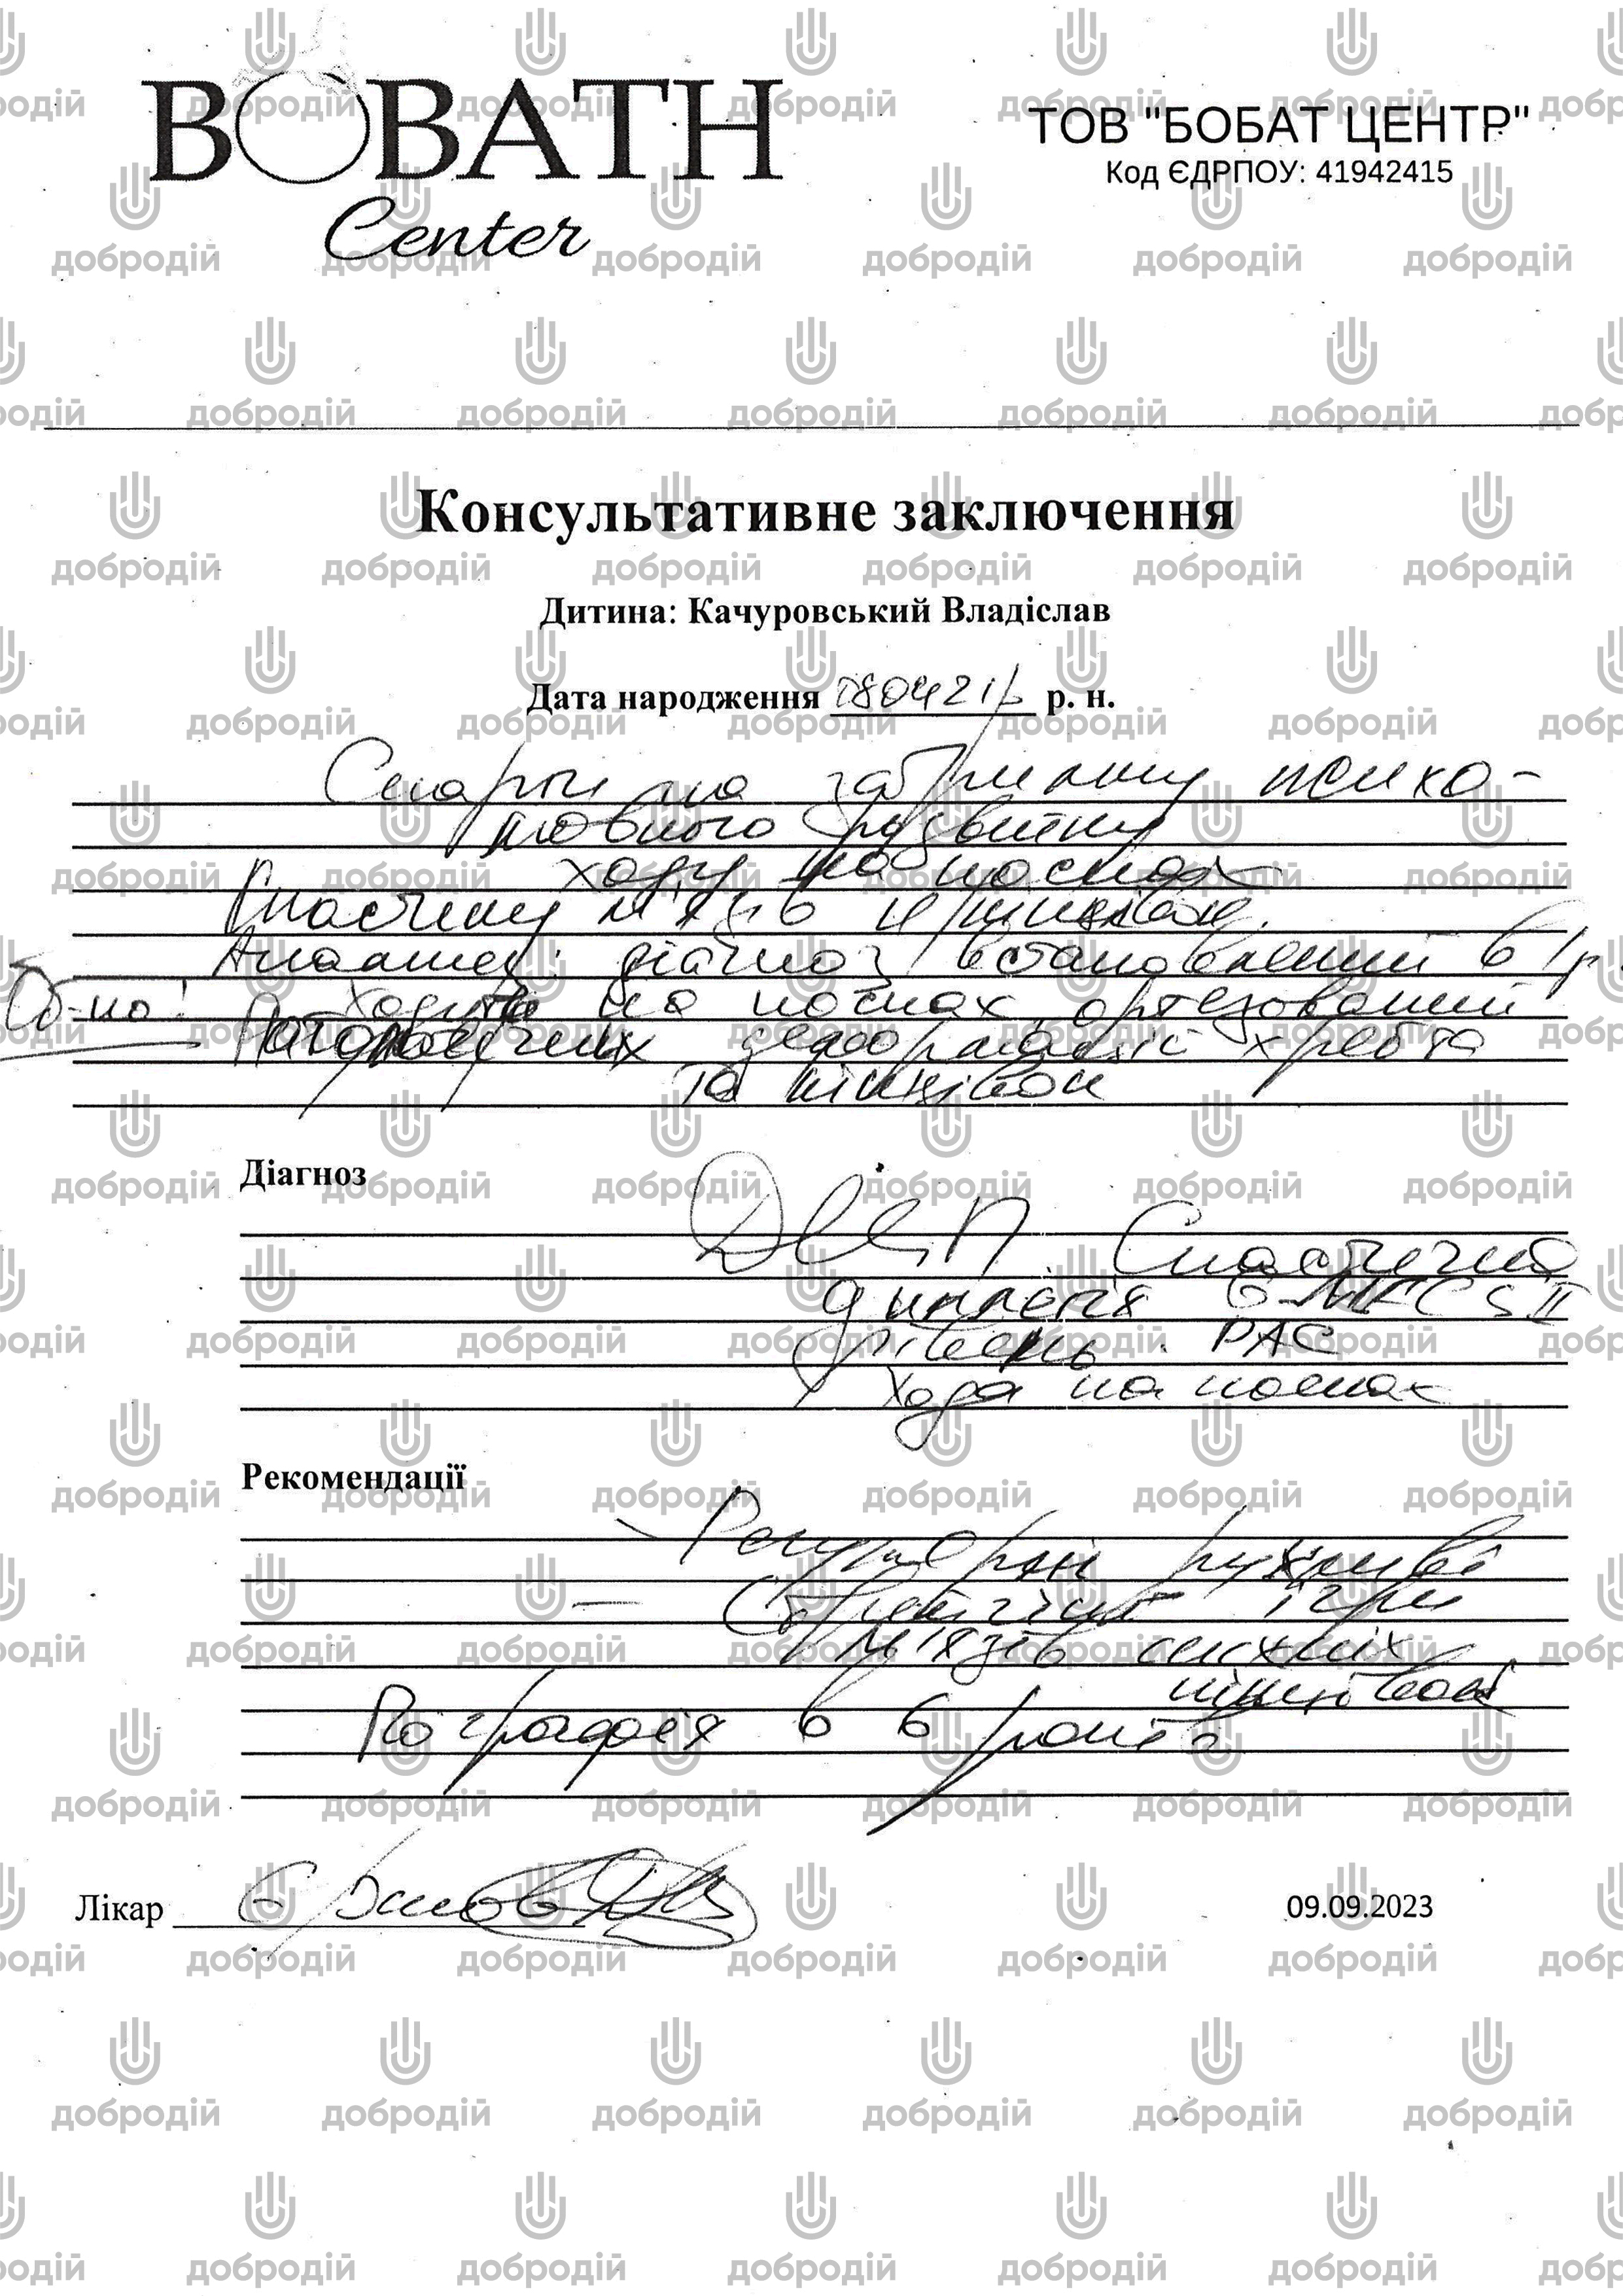 BOBATH
Center
ТОВ "БОБАТ ЦЕНТР"
Код ЄДРПОУ: 41942415
Консультативне заключення
Дитина: Качуровський Владіслав
Дата народження р. н.
Скарги на затримку психо-
мовного розвитку
ходу на носках
Спастику м'язів кінцівок.
Анамнез: діагноз встановлений в 1р.
Об-но: Ходить на носках,
деформацій хребта
та кінцівок
Діагноз
ДЦП Спастична
диплегія GMFCS II
рівень. РАС
Хода на носках
Рекомендації
- Регулярні рухливі
- ігри
м'язів нижніх
кінцівок
в 6 років
Лікар
09.09.2023
добродій